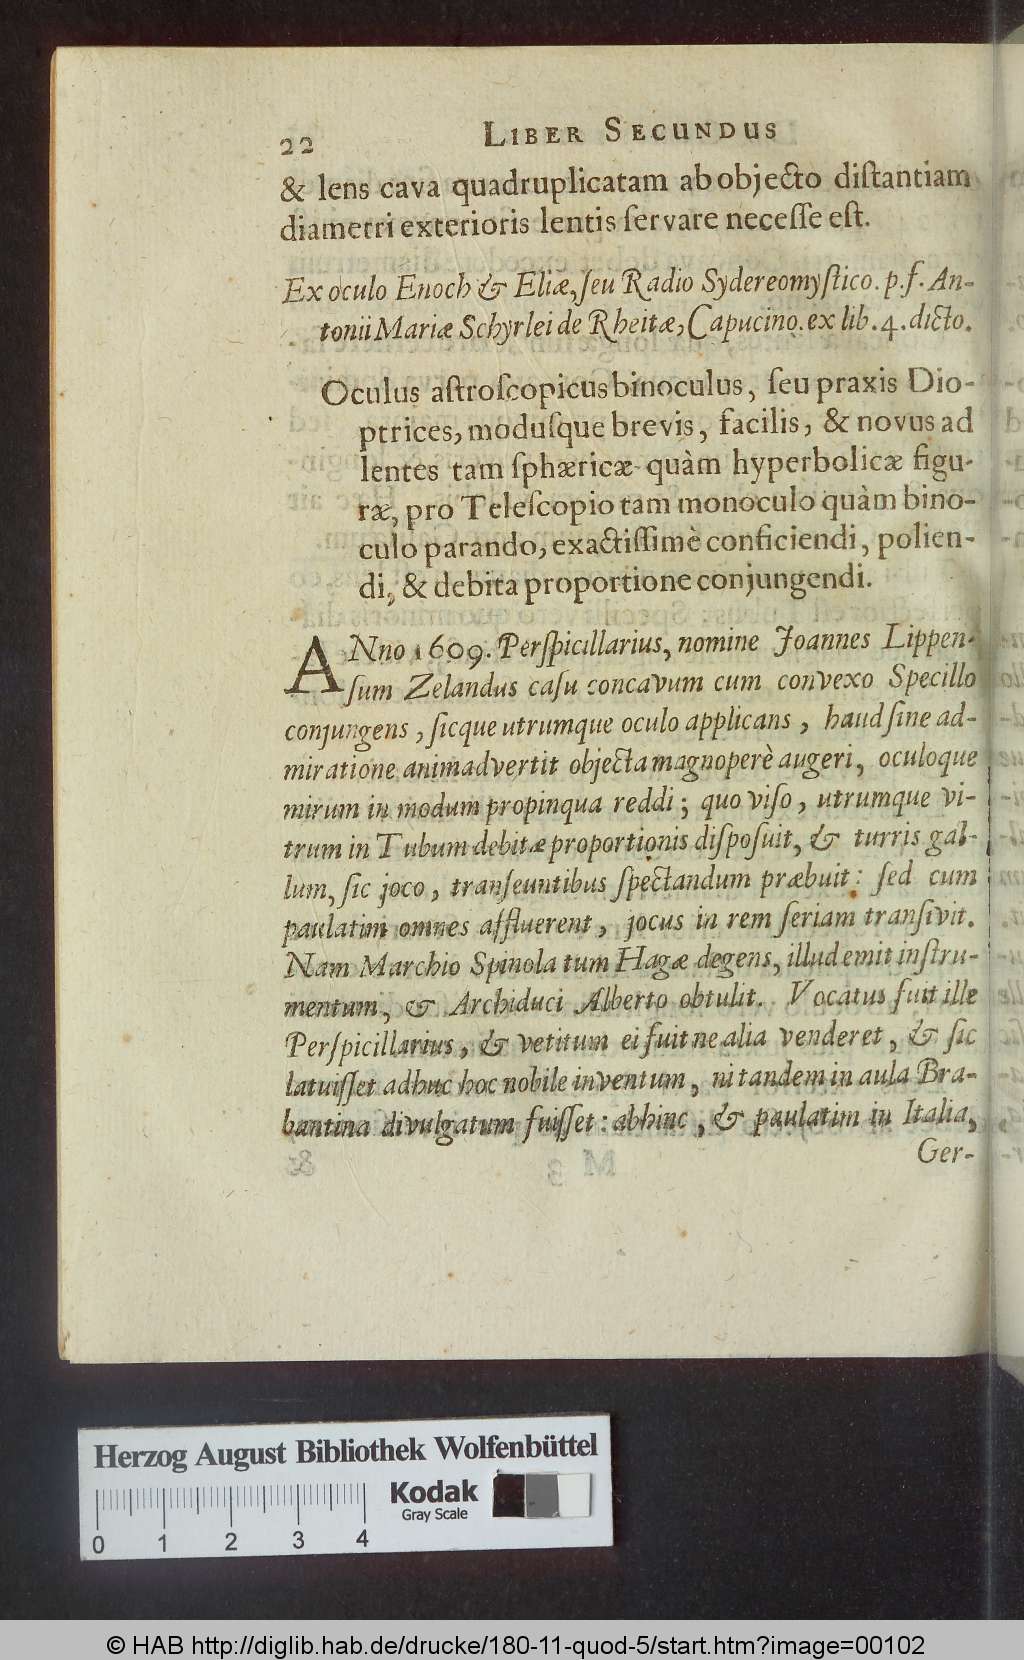 22 LIBER SECUNDUS
& lens cava quadruplicatam ab objecto diſtantiam
diametri exterioris lentis ſervare neceſſe eſt.
Ex oculo Enoch & Eliæ, ſeu Radio Sydereomyſtico. p. f. An-
tonii Mariæ Schyrlei de Rheitæ, Capucino. ex lib. 4. dicto.
Oculus aſtroſcopicus binoculus, ſeu praxis Dio-
ptrices, moduſque brevis, facilis, & novus ad
lentes tam ſphæricæ quàm hyperbolicæ figu-
ræ, pro Teleſcopio tam monoculo quàm bino-
culo parando, exactiſſimè conficiendi, polien-
di, & debita proportione conjungendi.
ANno 1609. Perſpicillarius, nomine Joannes Lippen-
ſum Zelandus caſu concavum cum convexo Specillo
conjungens, ſicque utrumque oculo applicans, haud ſine ad-
miratione animadvertit objecta magnoperè augeri, oculoque
mirum in modum propinqua reddi; quo viſo, utrumque vi-
trum in Tubum debitæ proportionis diſpoſuit, & turris gal-
lum, ſic joco, tranſeuntibus ſpectandum præbuit: ſed cum
paulatim omnes affluerent, jocus in rem ſeriam tranſivit.
Nam Marchio Spinola tum Hagæ degens, illud emit inſtru-
mentum, & Archiduci Alberto obtulit. Vocatus fuit ille
Perſpicillarius, & vetitum ei fuit ne alia venderet, & ſic
latuiſſet adhuc hoc nobile inventum, ni tandem in aula Bra-
bantina divulgatum fuiſſet: abhinc, & paulatim in Italia,
Ger-
Herzog August Bibliothek Wolfenbüttel
Kodak
Gray Scale
0 1 2 3 4
© HAB http://diglib.hab.de/drucke/180-11-quod-5/start.htm?image=00102